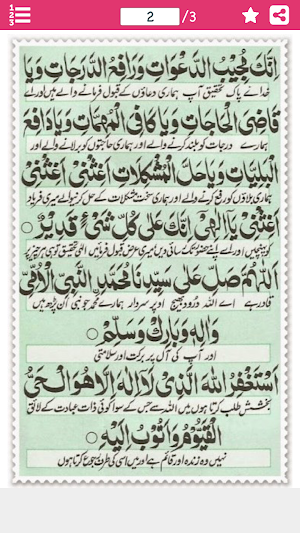 2 /3
اِنَّكَ مُجِيْبُ الدَّعْوَاتِ وَرَافِعُ الدَّرَجَاتِ وَيَا
خدائے پاک تحقیق آپ ہماری دعاؤں کے قبول فرمانے والے ہیں اور اے
قَاضِيَ الْحَاجَاتِ وَيَا كَافِيَ الْمُهِمَّاتِ وَيَا دَافِعَ
ہمارے درجات کو بلند کرنے والے اور ہماری حاجتوں کو برلانے والے اور
الْبَلِيَّاتِ وَيَا حَلَّ الْمُشْكِلَاتِ اَغِثْنِيْ اَغِثْنِيْ
ہماری بلاؤں کو رفع کرنے والے اور ہماری سخت مشکلات کے حل کرنے والے میری فریاد
اَغِثْنِيْ يَا اِلٰهِيْ اِنَّكَ عَلٰى كُلِّ شَيْءٍ قَدِيْرٌ ○
کو پہنچیں اور اپنے حضور تک رسائی دیں میری عرض قبول فرمائیں الٰہی تحقیق تو ہی ہر چیز پر
اَللّٰهُمَّ صَلِّ عَلٰى سَيِّدِنَا مُحَمَّدِ النَّبِيِّ الْاُمِّيِّ
قادر ہے اے اللہ درود بھیج اوپر سردار ہمارے محمدؐ جو نبی ان پڑھ ہیں
وَاٰلِهٖ وَبَارِكْ وَسَلِّمْ ○
اور آپ کی آل پر برکت اور سلامتی
اَسْتَغْفِرُ اللّٰهَ الَّذِيْ لَا اِلٰهَ اِلَّا هُوَ الْحَيُّ
بخشش طلب کرتا ہوں میں اللہ سے جس کے سوا کوئی ذات عبادت کے لائق
الْقَيُّوْمُ وَاَتُوْبُ اِلَيْهِ ○
نہیں وہ زندہ اور قائم ہے اور میں اسی کی طرف رجوع کرتا ہوں